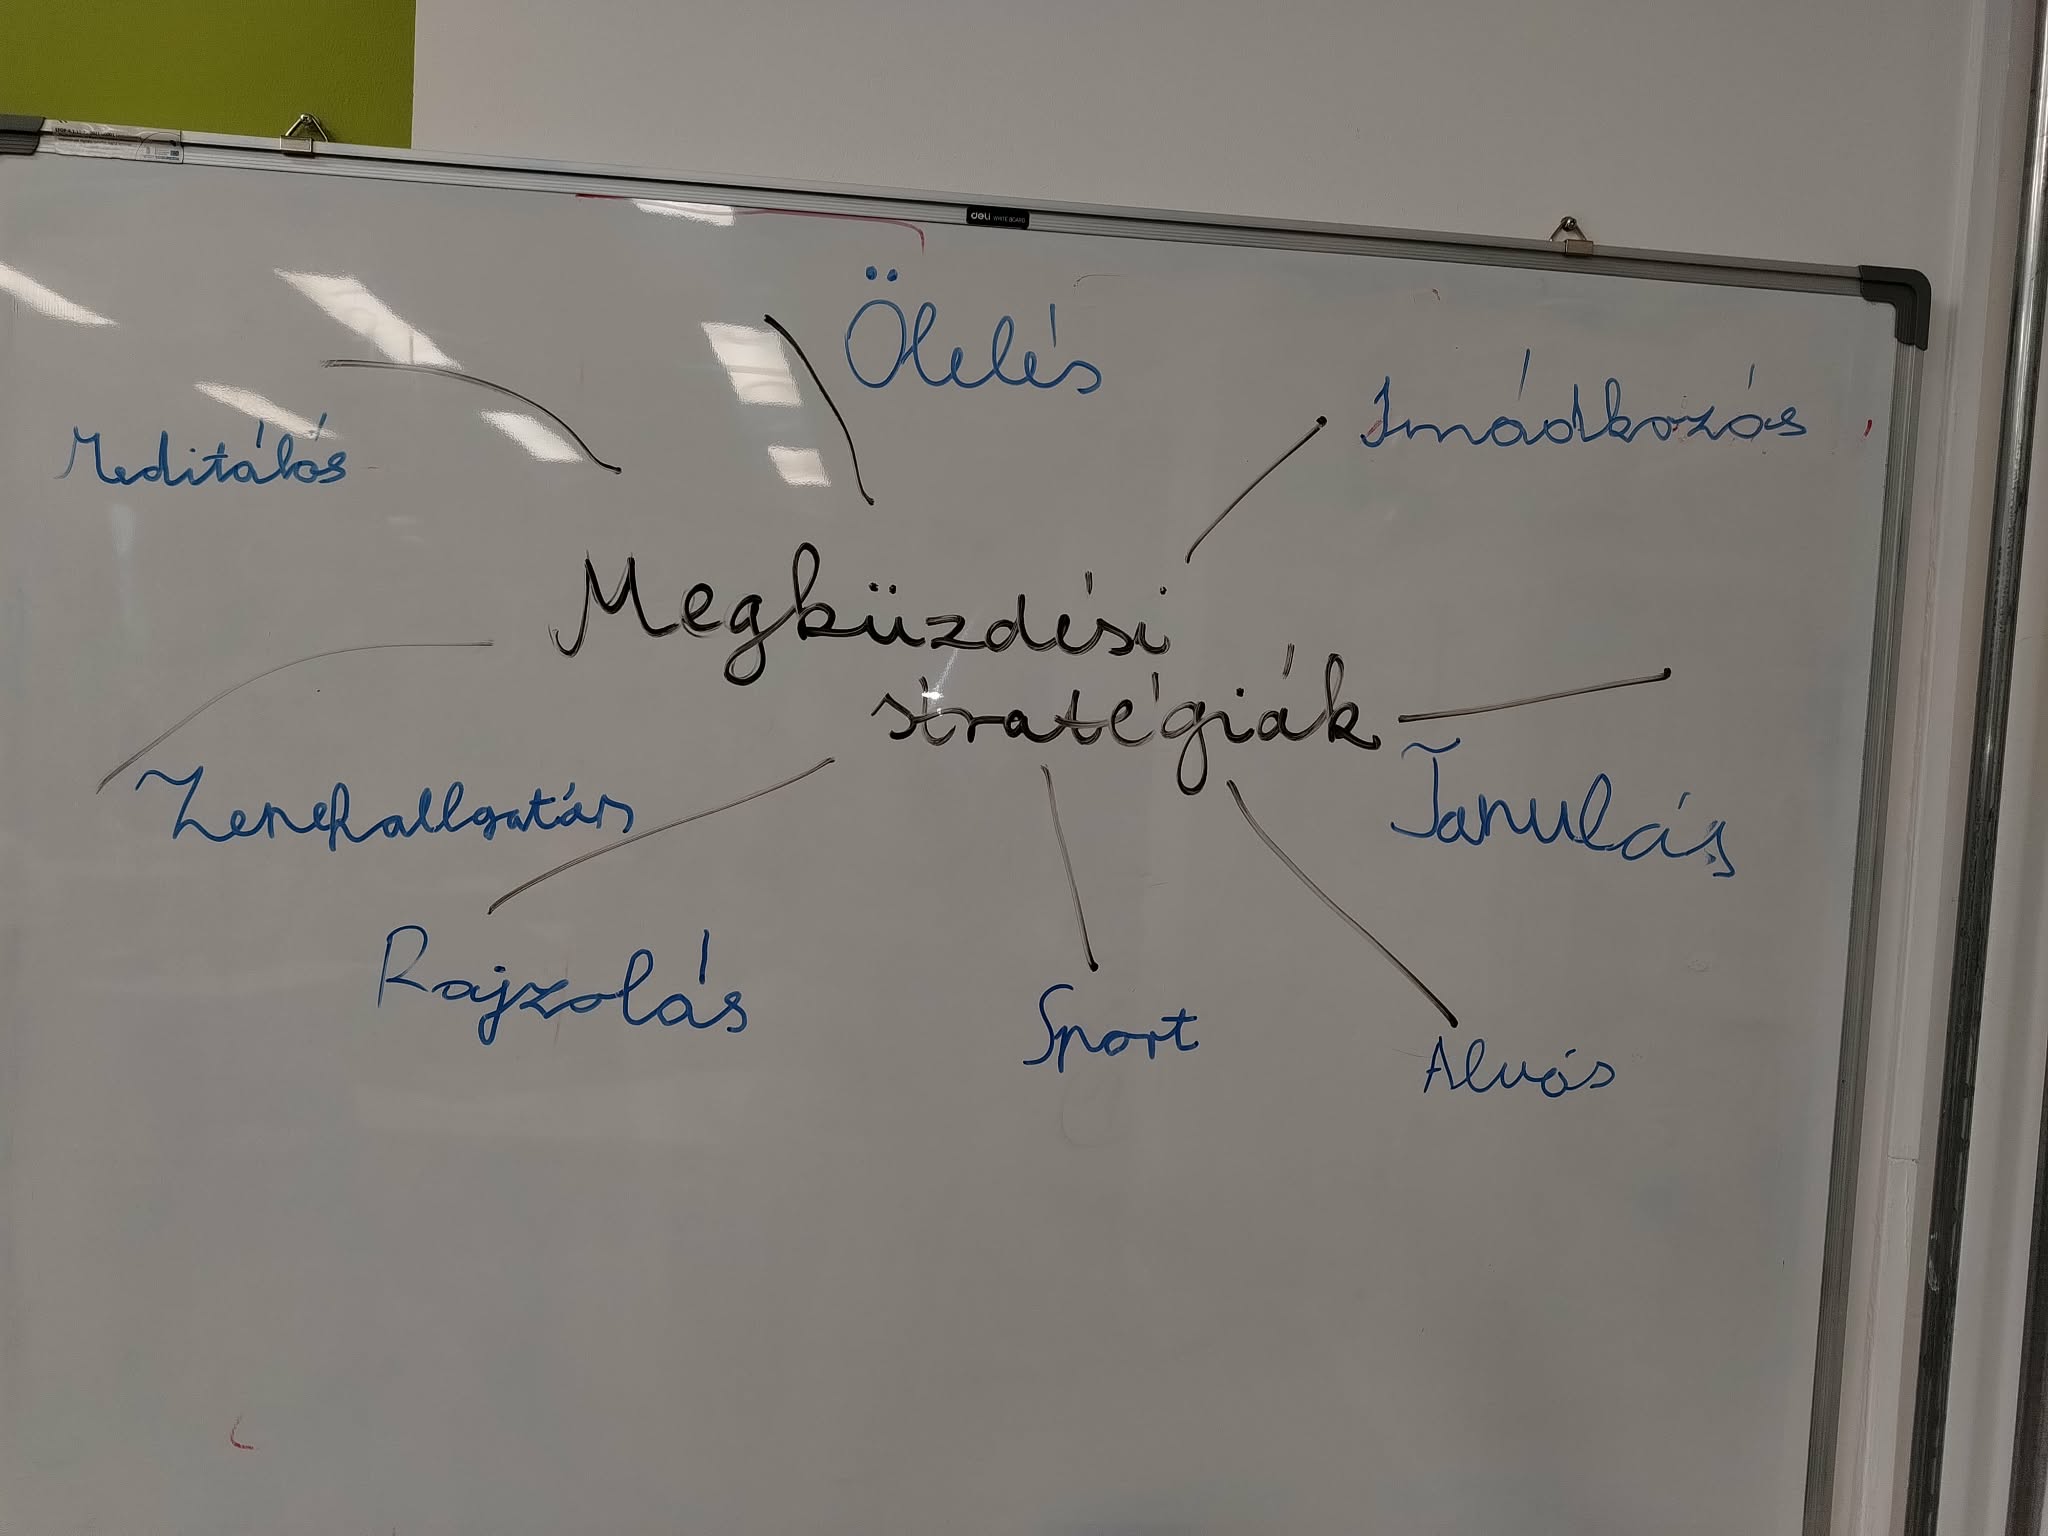 deli WHITE BOARD
Ölelés
Imádkozás
Meditálás
Megküzdési
stratégiák
Tanulás
Zenehallgatás
Rajzolás
Sport
Alvás